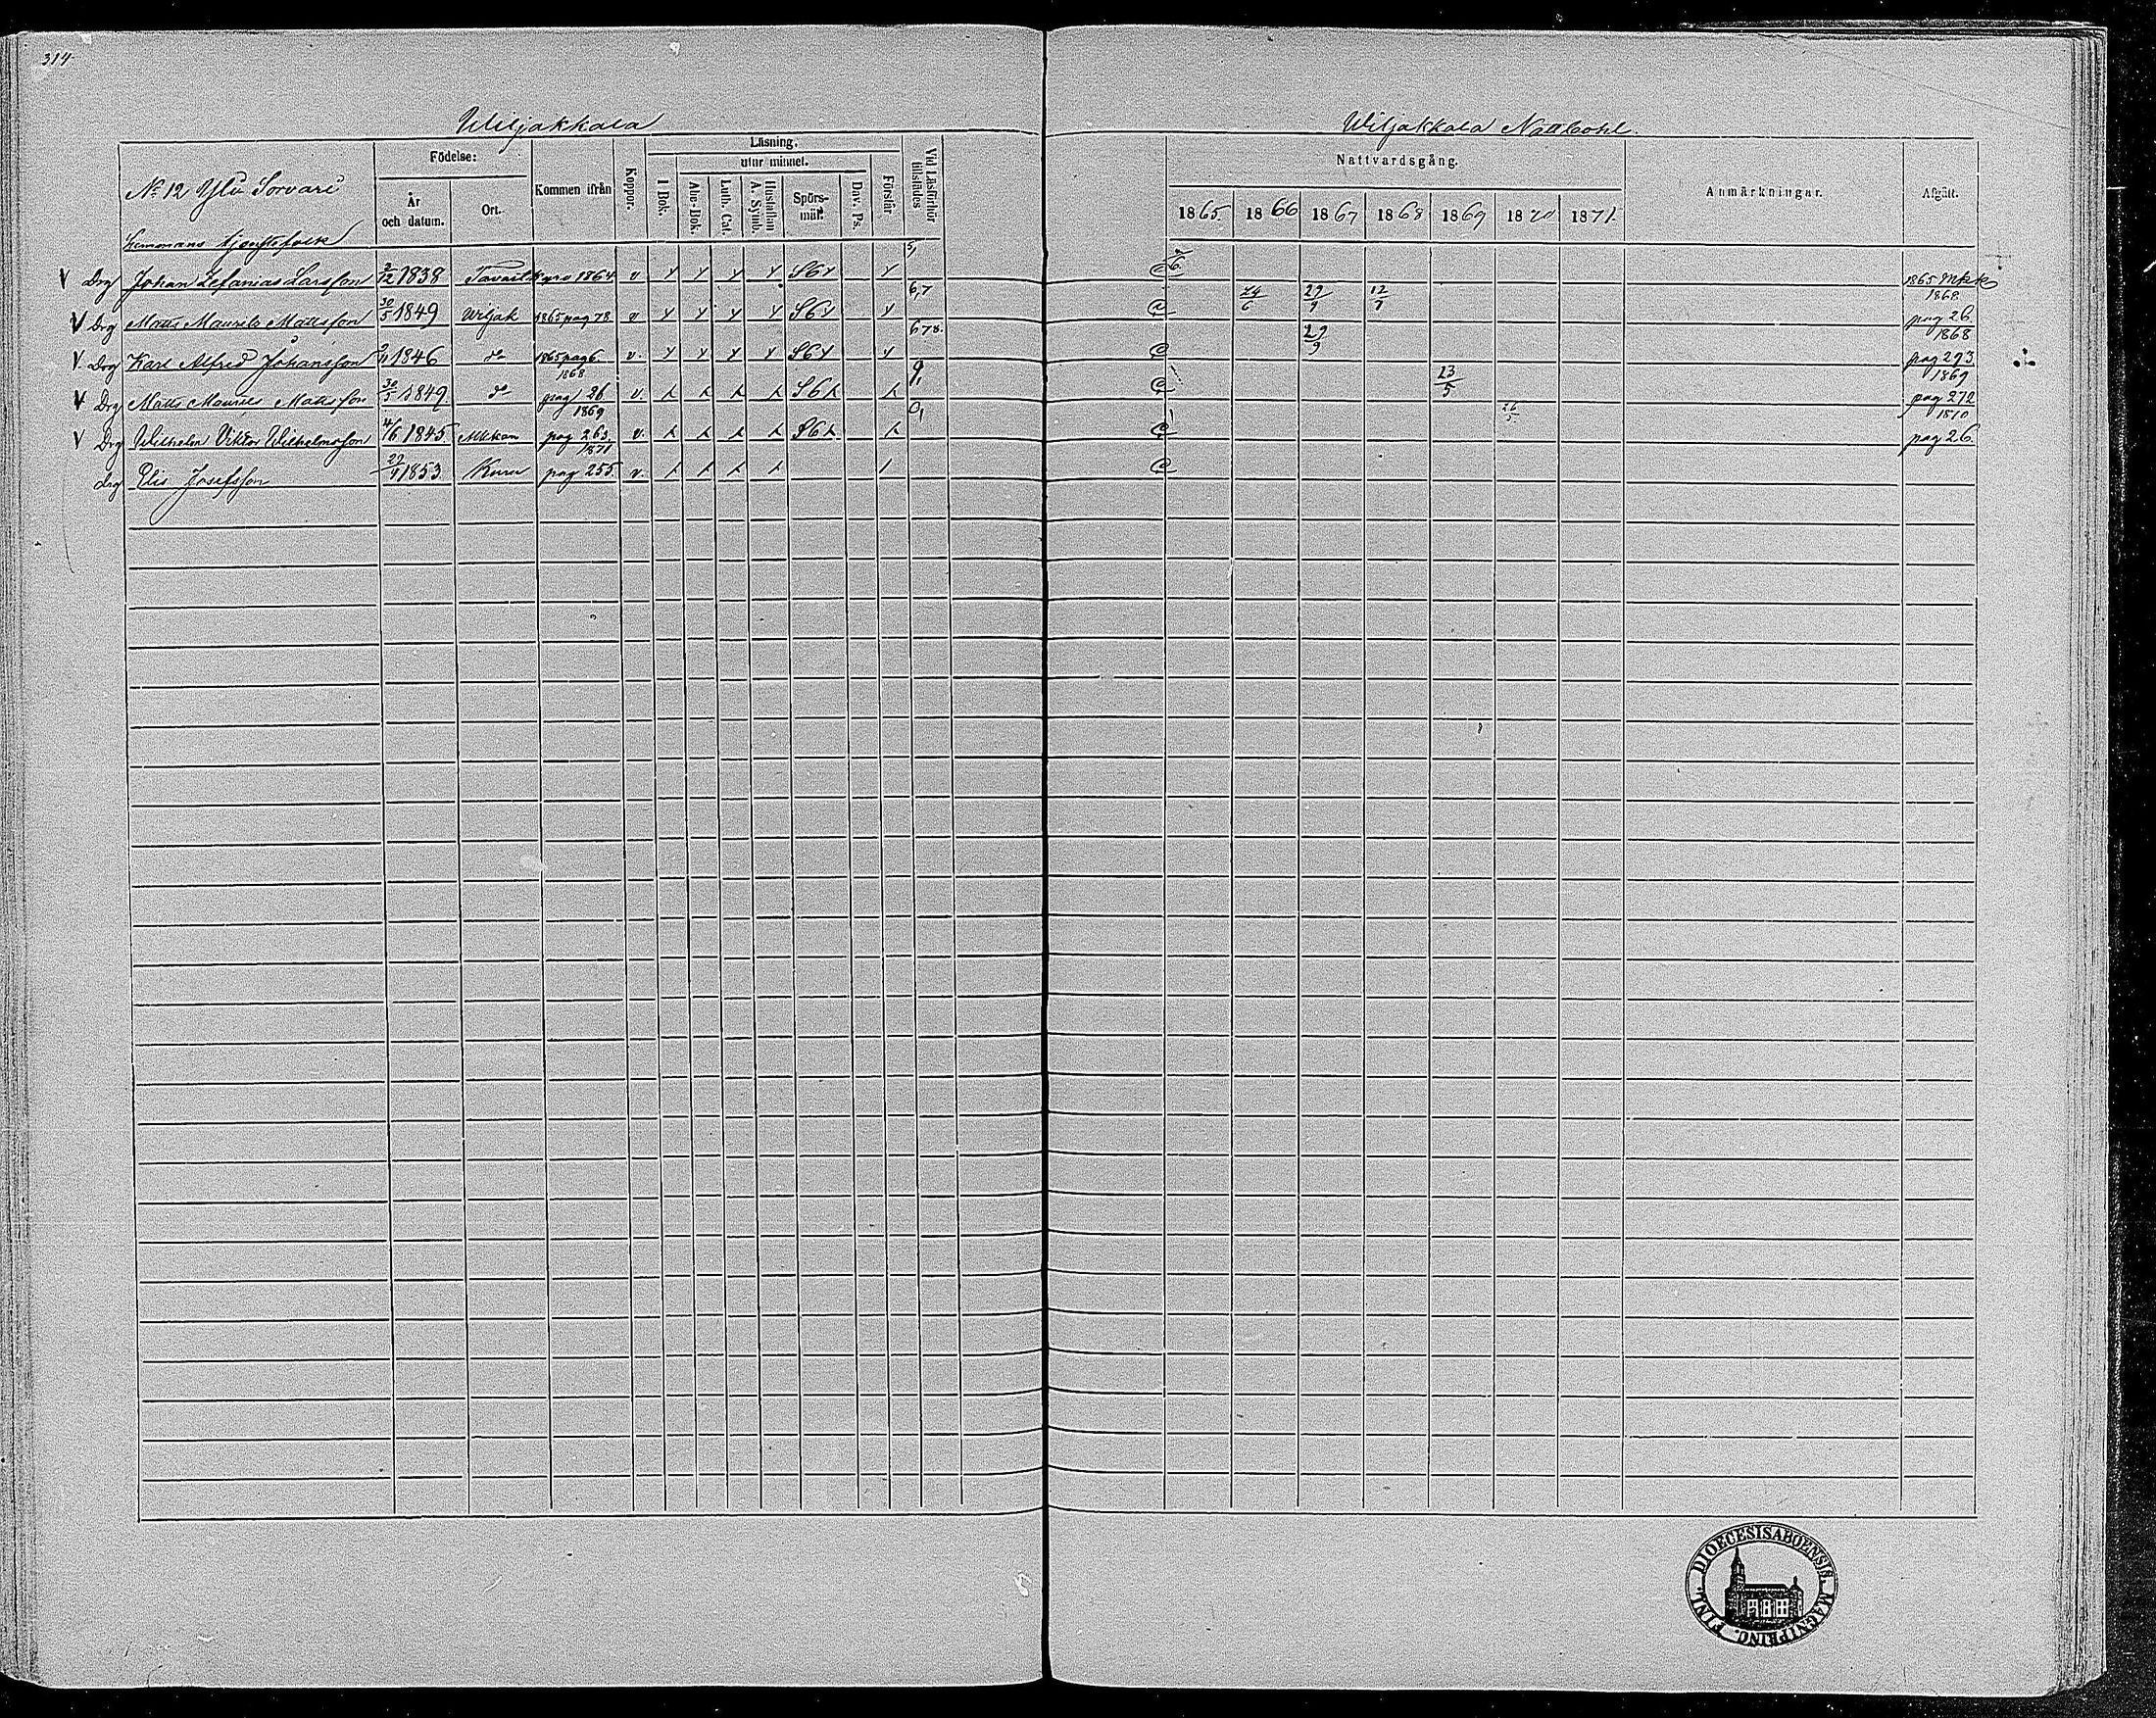 314
Wiljakkala
Wiljakkala
Födelse:
År och datum.
Ort.
Kommen ifrån
Koppor.
Läsning.
I Bok.
utur minnet.
Abc-Bok.
Luth. Cat.
Hustaflan A. Symb.
Spörs-mål.
Dav. Ps.
Förstår
Vid Läsförhör tillstädes
Nattvardsgång.
1865. 1866 1867 1868 1869 1870 1871.
Anmärkningar.
Afgått.
No 12 Yli Sorvari
Hemmans tjenstefolk
V Drg Johan Zefanias Larsson 3/12 1838 Tavastkyro 1864 v S6y 5, 1865 Mkk
V Drg Matts Maurits Mattsson 30/5 1849 Wiljak 1865 pag 78 v S6y 6,7 24/6 29/9 12/7 1868 pag 26
V. Drg Karl Alfred Johansson 1846 do 1865 pag 6 v. S6y 678. 29/9 1868 pag 293
V Drg Matts Maurits Mattsson 30/5 1849 do 1868 pag 26 v. 9, 23/5 1869 pag 272
V Drg Wilhelm Viktor Wilhelmsson 4/6 1845 1869 pag 263 v. 0, 26/5 1870 pag 26
drg Elis Josefsson 1853 Kuru 1871 pag 255 v.
DIOECESIS ABOENSIS. MAGNI PRINC. FINL.